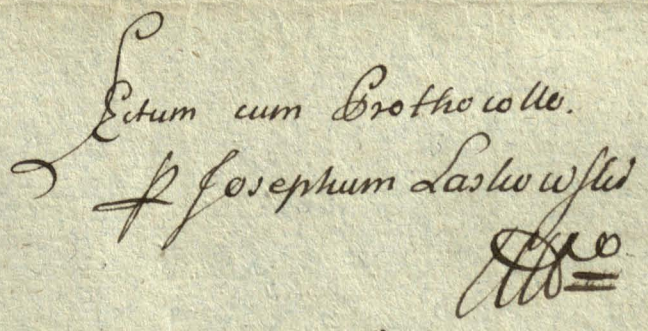 Lectum cum Prothocollo.
p Josephum Laskowski